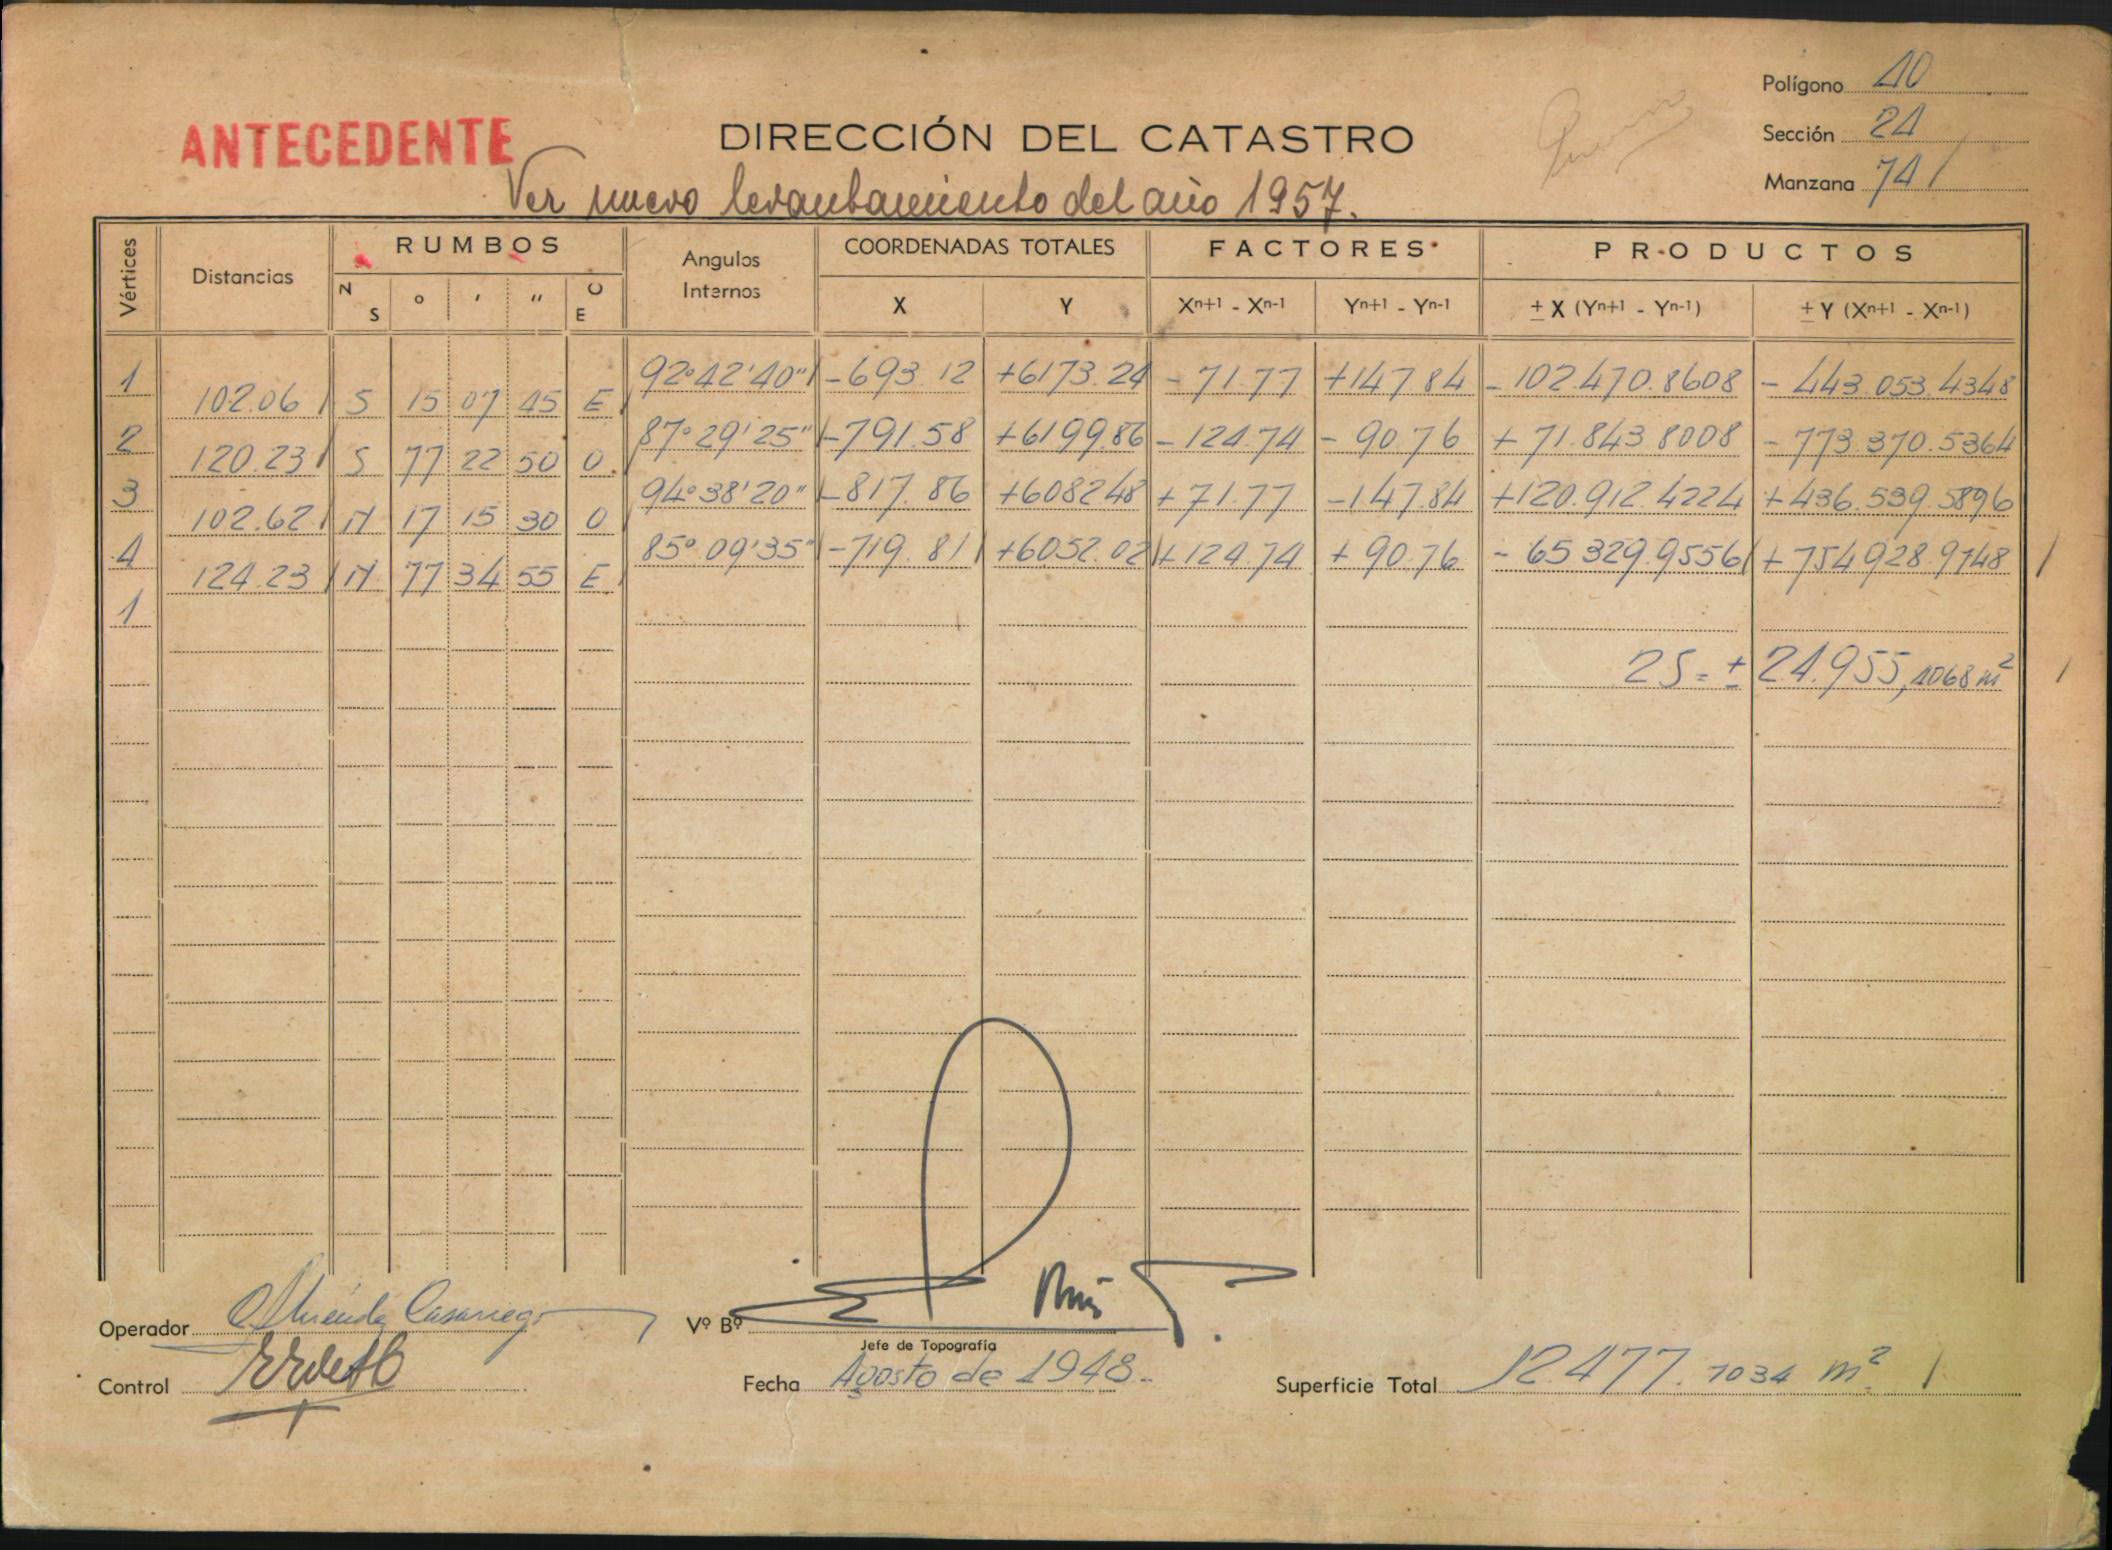 Polígono 40
ANTECEDENTE DIRECCIÓN DEL CATASTRO Sección 24
Ver nuevo levantamiento del año 1957. Manzana 74
Vértices Distancias RUMBOS Angulos Internos COORDENADAS TOTALES FACTORES PRODUCTOS
N S ° ' " O E X Y Xn+1 - Xn-1 Yn+1 - Yn-1 ± X (Yn+1 - Yn-1) ± Y (Xn+1 - Xn-1)
1 92°42'40" -693.12 +6173.24 -71.77 +147.84 -102.470.8608 -443.053.4348
102.06 S 15 07 45 E
2 87°29'25" -791.58 +6199.86 -124.74 -90.76 +71.843.8008 -773.370.5364
120.23 S 77 22 50 O
3 94°38'20" -817.86 +6082.48 +71.77 -147.84 +120.912.4224 +436.539.5896
102.62 N 17 15 30 O
4 85°09'35" -719.81 +6052.02 +124.74 +90.76 -65.329.9556 +754.928.9748
124.23 N 77 34 55 E
1
2S = ± 24.955,4068 m²
Operador Vº Bº
Jefe de Topografía
Control Fecha Agosto de 1948. Superficie Total 12.477.7034 m²